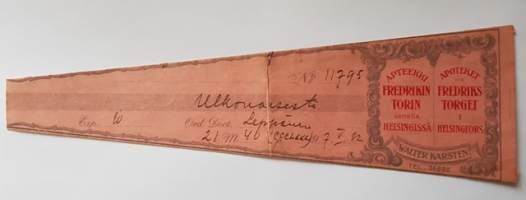 No 11795
Ulkonaisesti
Exp. W Ord. Doct. Leppänen
21
APTEEKKI
FREDRIKIN
TORIN
varrella
HELSINGISSÄ
APOTEKET
vid
FREDRIKS
TORGET
I
HELSINGFORS
WALTER KARSTEN
TEL.